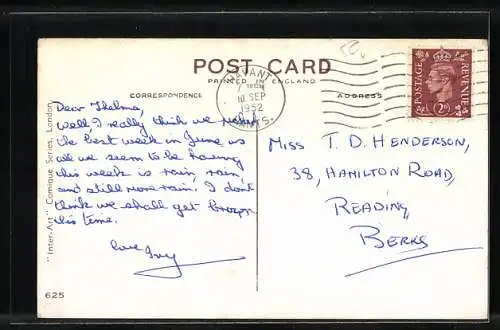 POST CARD
PRINTED IN ENGLAND
CORRESPONDENCE
ADDRESS
HAVANT
10 SEP
1952
HANTS.
POSTAGE
REVENUE
2D
Dear Thelma,
Well, I really think we had
the best week in June as
all we seem to be having
this week is rain, rain,
and still more rain. I don't
think we shall get brown
this time.
love Ivy
Miss T. D. Henderson,
38, Hamilton Road,
Reading,
Berks
"Inter-Art" Comique Series, London.
625